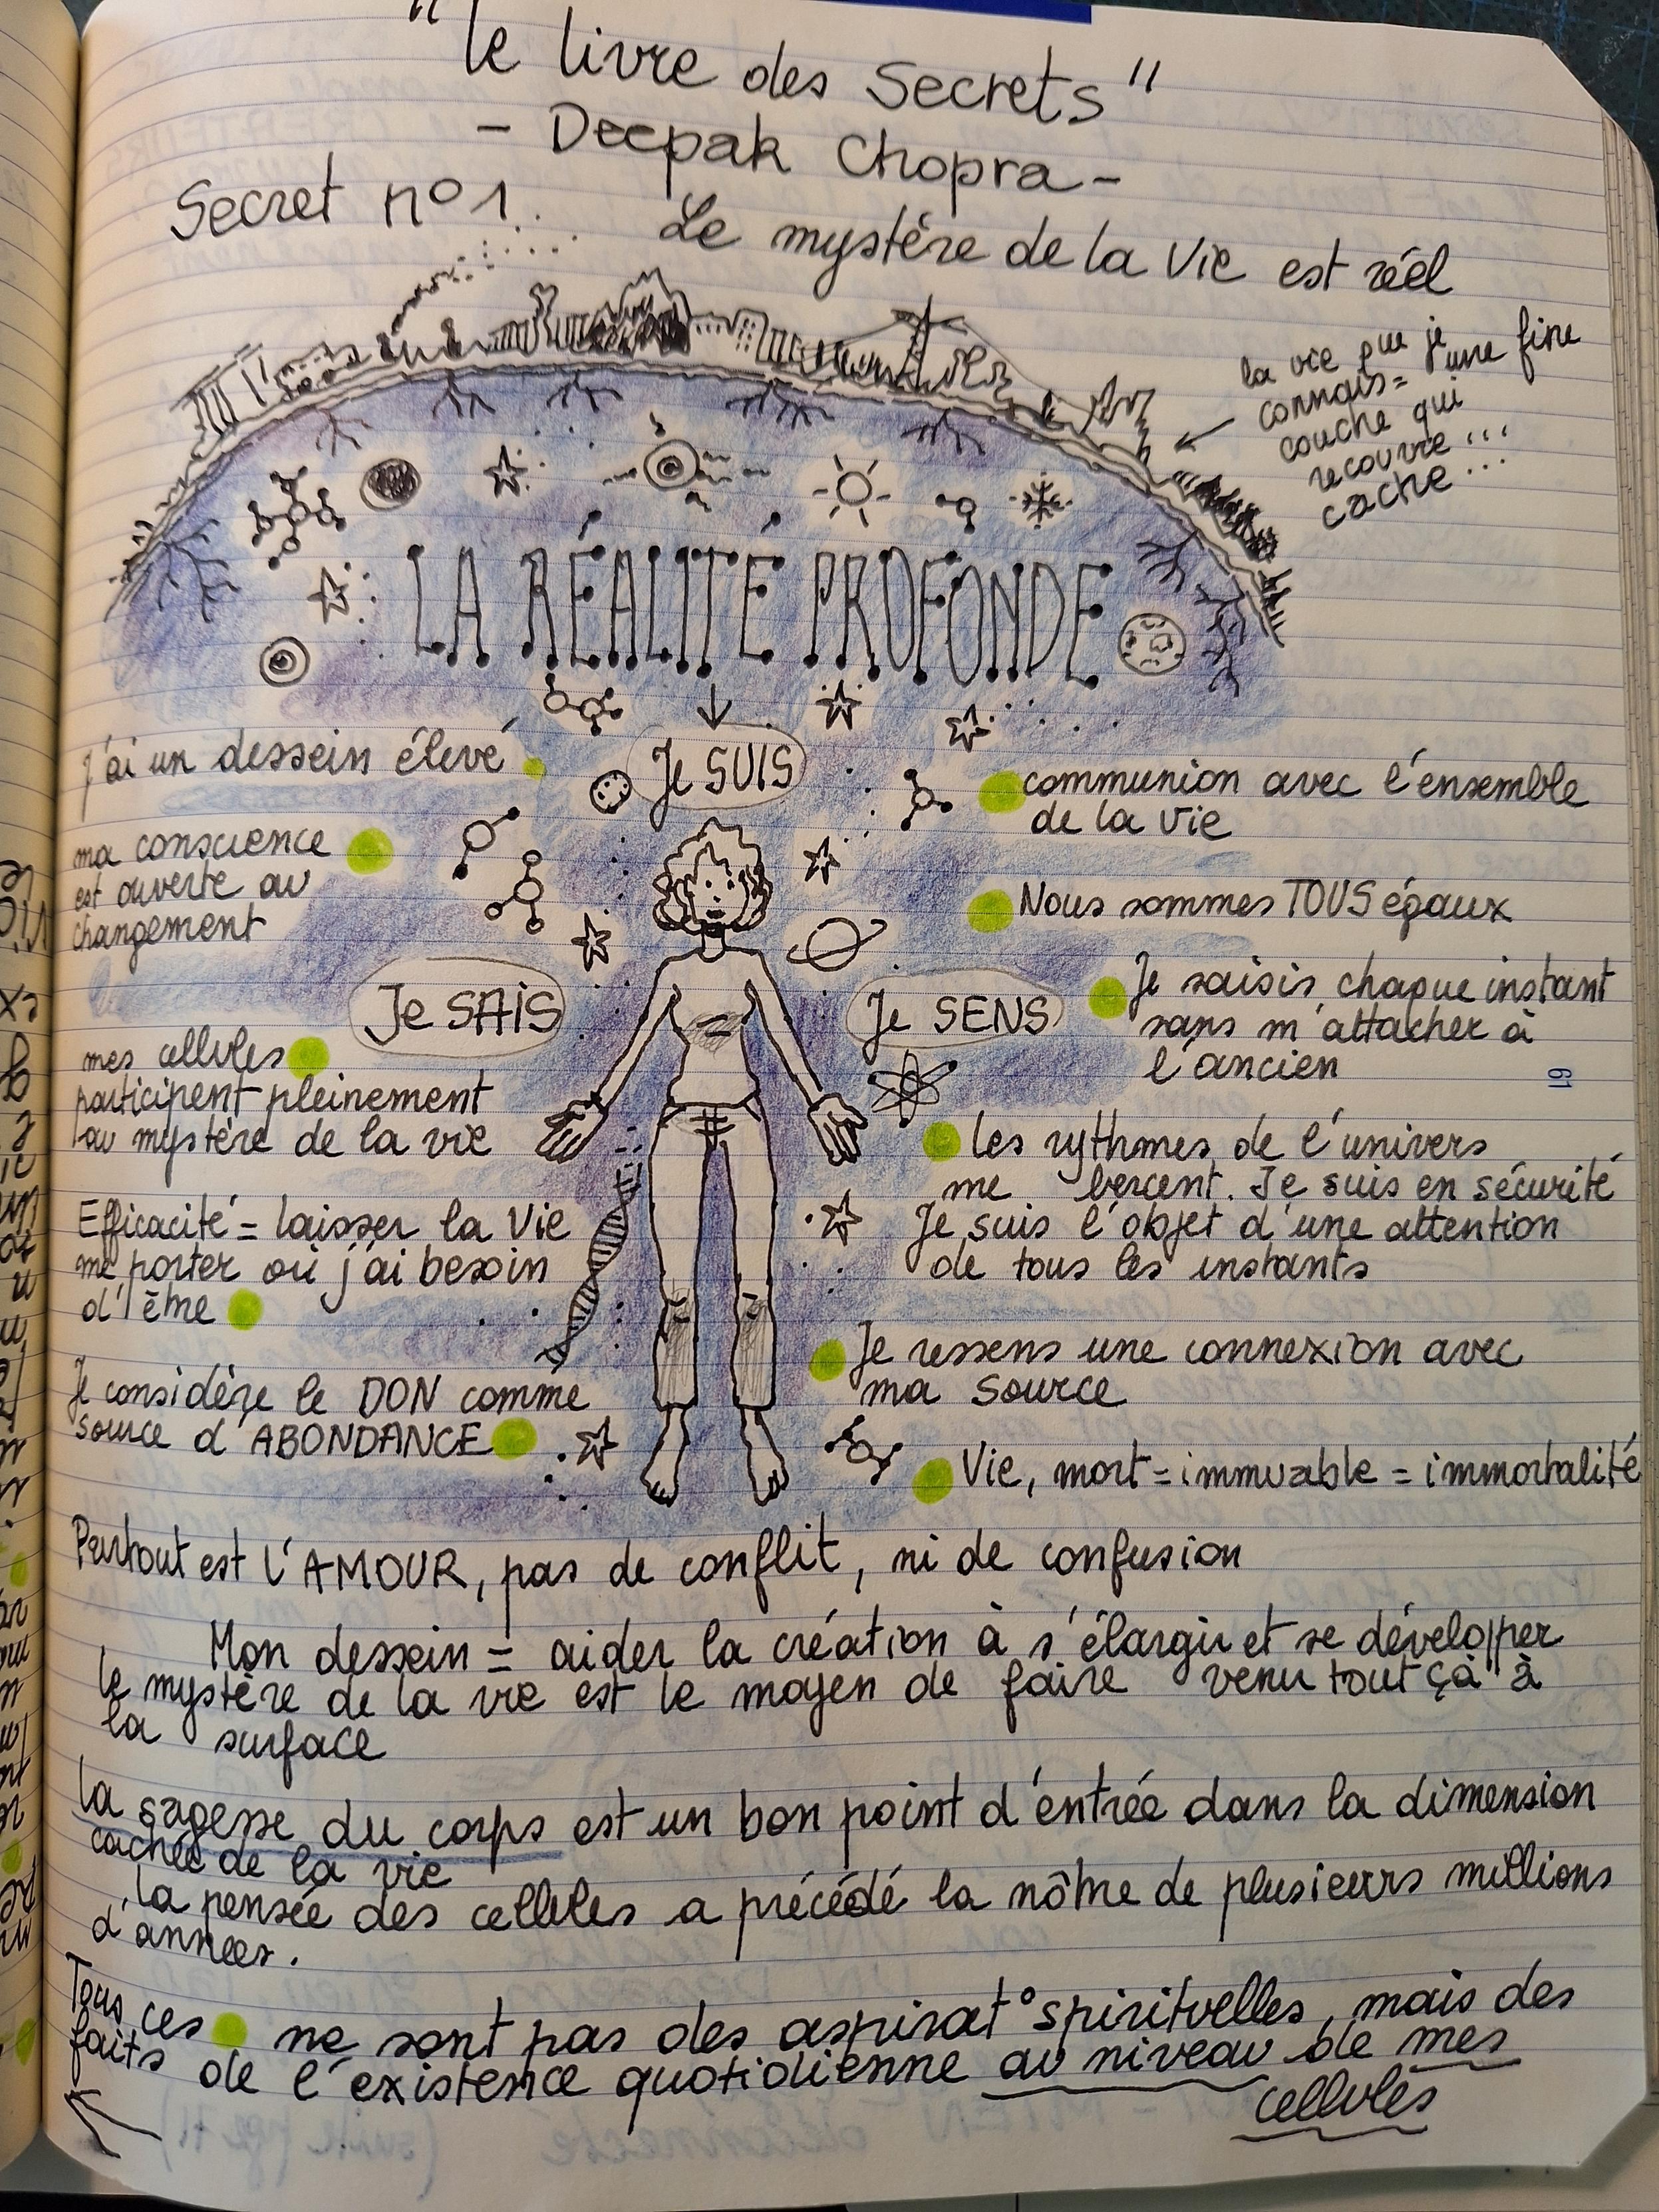 "le livre des Secrets"
- Deepak Chopra -
Secret n°1.
Le mystère de la Vie est réel
la vie que je
connais = une fine
couche qui
recouvre ...
cache ...
LA RÉALITÉ PROFONDE
Je SUIS
j'ai un dessein élevé
ma conscience
est ouverte au
changement
Je SAIS
mes cellules
participent pleinement
au mystère de la vie
Efficacité = laisser la Vie
me porter où j'ai besoin
d'être
Je considère le DON comme
source d'ABONDANCE
communion avec l'ensemble
de la Vie
Nous sommes TOUS égaux
Je SENS
Je saisis chaque instant
sans m'attacher à
l'ancien
61
Les rythmes de l'univers
me bercent. Je suis en sécurité
Je suis l'objet d'une attention
de tous les instants
Je ressens une connexion avec
ma source
Vie, mort = immuable = immortalité
Partout est l'AMOUR, pas de conflit, ni de confusion
Mon dessein = aider la création à s'élargir et se développer
le mystère de la vie est le moyen de faire venir tout çà à
la surface
La sagesse du corps est un bon point d'entrée dans la dimension
cachée de la vie
La pensée des cellules a précédé la nôtre de plusieurs millions
d'années.
Tous ces ne sont pas des aspirat° spirituelles, mais des
faits de l'existence quotidienne au niveau de mes
cellules